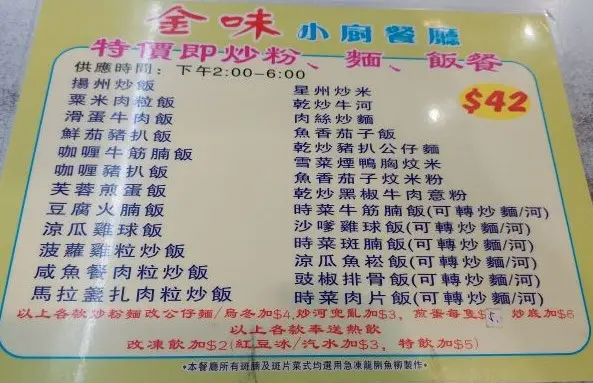 金味小廚餐廳
特價即炒粉、麵、飯餐
供應時間：下午2:00-6:00
$42
揚州炒飯
粟米肉粒飯
滑蛋牛肉飯
鮮茄豬扒飯
咖喱牛筋腩飯
咖喱豬扒飯
芙蓉煎蛋飯
豆腐火腩飯
涼瓜雞球飯
菠蘿雞粒炒飯
咸魚餐肉粒炒飯
馬拉盞扎肉粒炒飯
星州炒米
乾炒牛河
肉絲炒麵
魚香茄子飯
乾炒豬扒公仔麵
雪菜煙鴨胸炆米
魚香茄子炆米粉
乾炒黑椒牛肉意粉
時菜牛筋腩飯(可轉炒麵/河)
沙嗲雞球飯(可轉炒麵/河)
時菜斑腩飯(可轉炒麵/河)
涼瓜魚崧飯(可轉炒麵/河)
豉椒排骨飯(可轉炒麵/河)
時菜肉片飯(可轉炒麵/河)
以上各款炒粉麵改公仔麵/烏冬加$4,炒河兜亂加$3，煎蛋每隻$5，炒底加$6
以上各款奉送熱飲
改凍飲加$2(紅豆冰/汽水加$3，特飲加$5)
•本餐廳所有斑腩及斑片菜式均選用急凍龍脷魚柳製作•